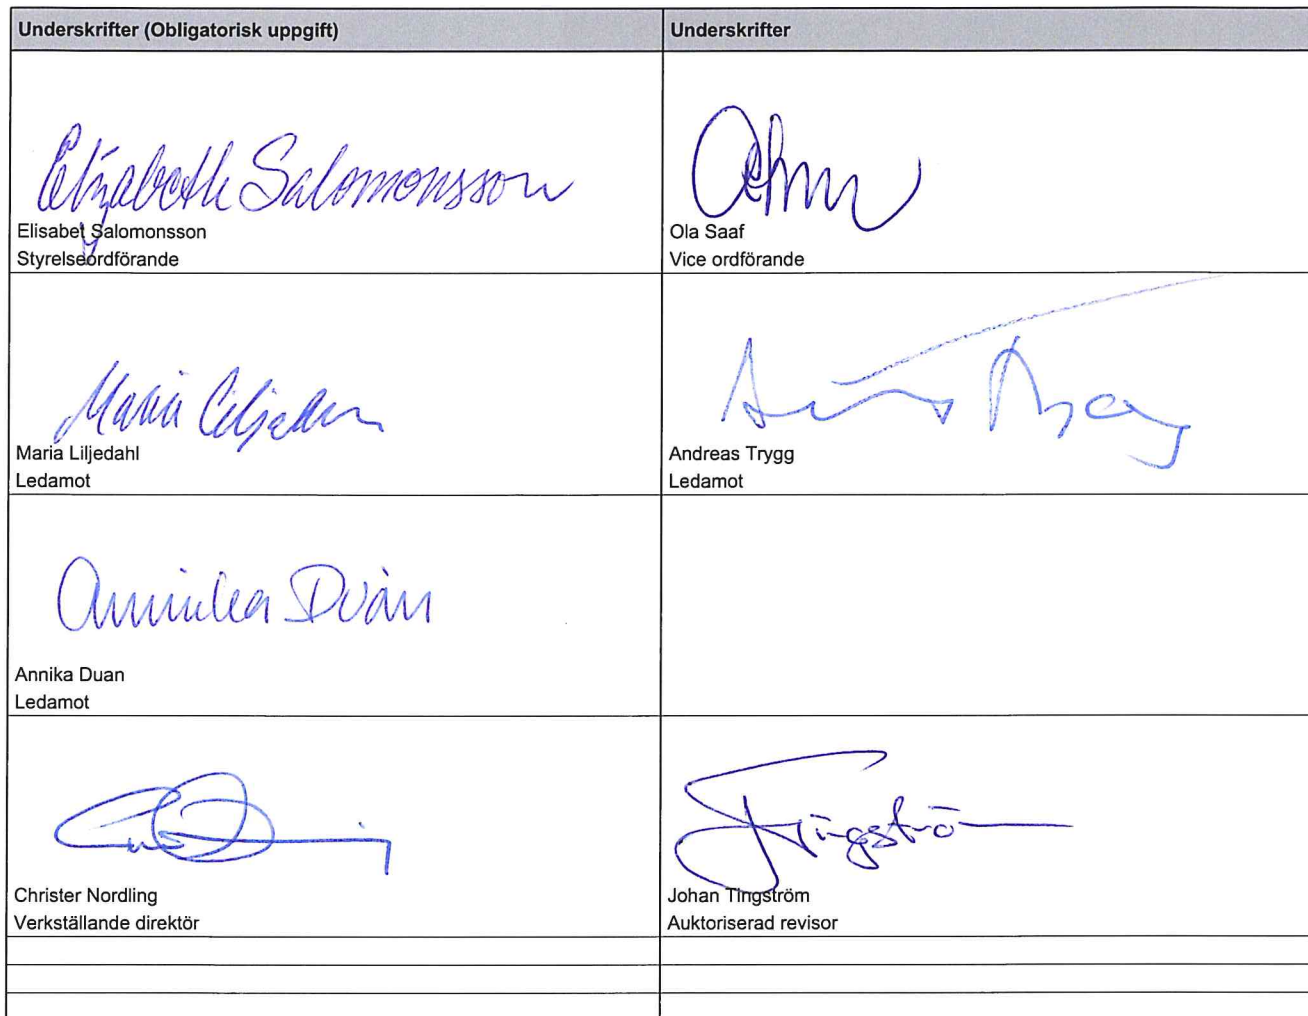 Underskrifter (Obligatorisk uppgift)
Underskrifter
Elizabeth Salomonsson
Elisabet Salomonsson
Styrelseordförande
Ola Saaf
Vice ordförande
Maria Liljedahl
Maria Liljedahl
Ledamot
Andreas Trygg
Ledamot
Annika Duan
Annika Duan
Ledamot
Christer Nordling
Verkställande direktör
Tingström
Johan Tingström
Auktoriserad revisor